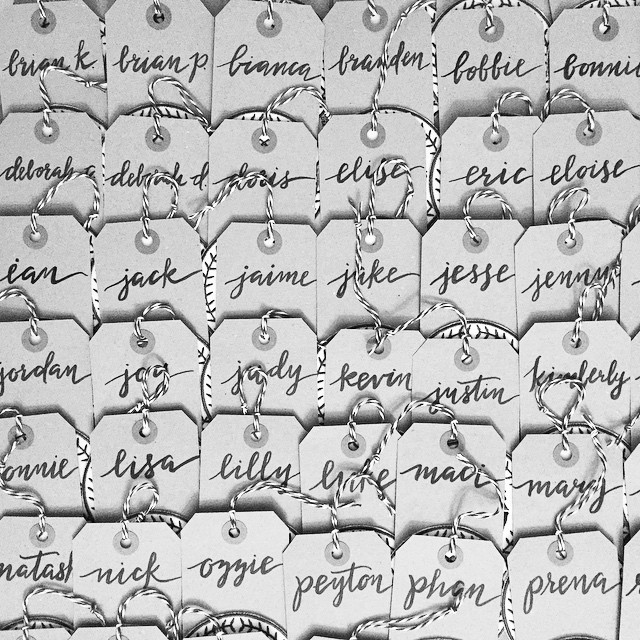 brian k.
brian p.
bianca
branden
bobbie
bonnie
deborah
deborah d.
doris
elise
eric
eloise
jack
jaime
jake
jesse
jenny
jordan
judy
kevin
justin
kimberly
lisa
lilly
maci
mary
nick
ozzie
peyton
phan
prena